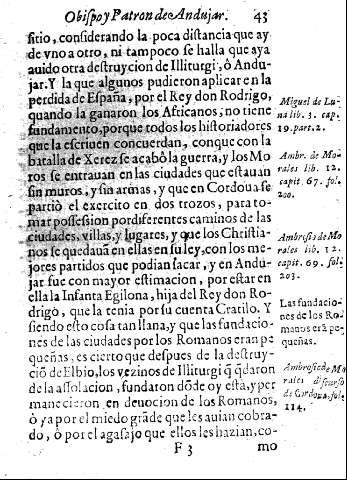 Obispo y Patron de Andujar. 43
sitio, considerando la poca distancia que ay
de vno a otro, ni tampoco se halla que aya
auido otra destruycion de Illiturgi, ò Andu-
jar. Y la que algunos pudieron aplicar en la
perdida de España, por el Rey don Rodrigo,
quando la ganaron los Africanos, no tiene
fundamento, porque todos los historiadores
que la escriuen concuerdan, con que con la
batalla de Xerez se acabò la guerra, y los Mo
ros se entrauan en las ciudades que estauan
sin muros, y sin armas, y que en Cordoua se
partiò el exercito en dos trozos, para to-
mar possession por diferentes caminos de las
ciudades, villas, y lugares, y que los Christia-
nos se quedauã en ellas en su ley, con los me-
jores partidos que podian sacar, y en Andu-
jar fue con mayor estimacion, por estar en
ella la Infanta Egilona, hija del Rey don Ro-
drigo, que la tenia por su cuenta Cratilo. Y
siendo esto cosa tan llana, y que las fundacio-
nes de las ciudades por los Romanos eran pe
queñas, es cierto que despues de la destruy-
ciõ de Elbio, los vezinos de Illiturgi q̃ q̃daron
de la assolacion, fundaron dõde oy està, y per
manecieron en deuocion de los Romanos,
ò ya por el miedo grãde que les auian cobra-
do, ò por el agasajo que ellos les hazian, co-
F 3 mo
Miguel de Lu-
na lib. 3. cap.
19. part. 2.
Ambr. de Mo-
rales lib. 12.
capit. 67. fol.
200.
Ambrosio de Mo
rales lib. 12.
capit. 69. fol.
203.
Las fundacio-
nes de los Ro-
manos erã pe-
queñas.
Ambrosio de Mo
rales discurso
de Cordoua, fol.
114.